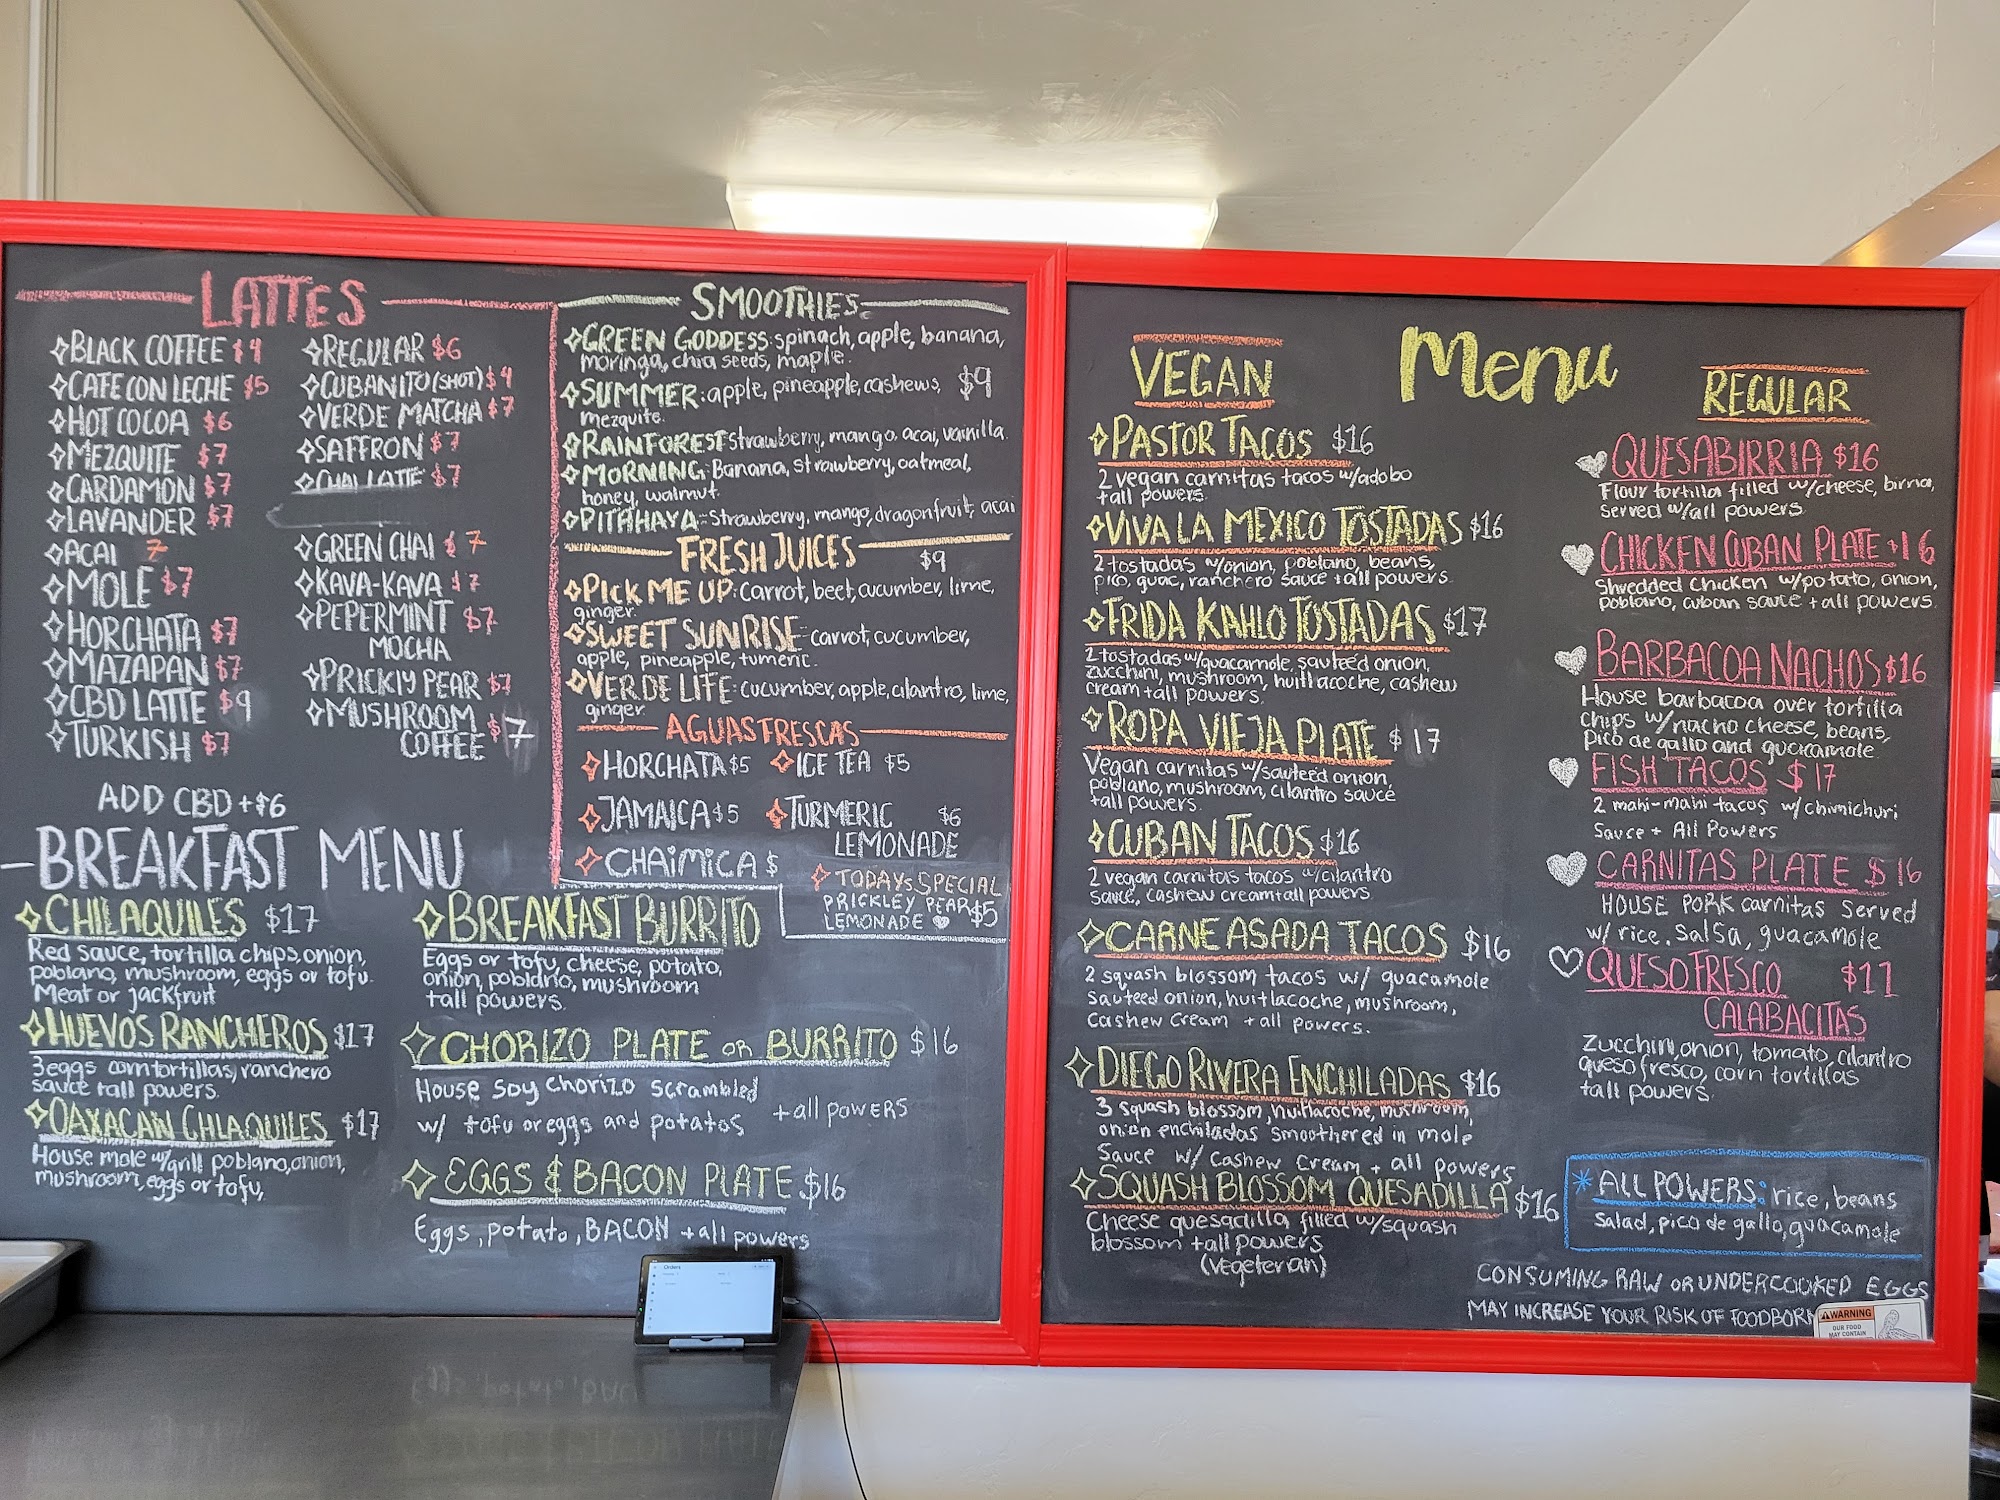 LATTES
BLACK COFFEE $4
CAFE CON LECHE $5
HOT COCOA $6
MEZQUITE $7
CARDAMON $7
LAVANDER $7
ACAI 7
MOLE $7
HORCHATA $7
MAZAPAN $7
CBD LATTE $9
TURKISH $7
REGULAR $6
CUBANITO (SHOT) $4
VERDE MATCHA $7
SAFFRON $7
CHAI LATTE $7
GREEN CHAI $7
KAVA-KAVA $7
PEPERMINT $7
MOCHA
PRICKIY PEAR $7
MUSHROOM $7
COFFEE
ADD CBD +$6
SMOOTHIES
GREEN GODDESS: spinach, apple, banana,
moringa, chia seeds, maple.
SUMMER: apple, pineapple, cashews, $9
mezquite.
RAINFOREST strawberry, mango, acai, vainilla
MORNING: Banana, strawberry, oatmeal,
honey, walnut.
PITAHAYA: Strawberry, mango, dragonfruit, acai
FRESH JUICES $9
PICK ME UP: Carrot, beet, cucumber, lime,
ginger.
SWEET SUNRISE: carrot, cucumber,
apple, pineapple, tumeric.
VERDE LIFE: cucumber, apple, cilantro, lime,
ginger.
AGUAS FRESCAS
HORCHATA $5 ICE TEA $5
JAMAICA $5 TURMERIC $6
LEMONADE
CHAIMICA $
TODAYS SPECIAL
PRICKLEY PEAR $5
LEMONADE
BREAKFAST MENU
CHILAQUILES $17
Red sauce, tortilla chips, onion,
poblano, mushroom, eggs or tofu.
Meat or jackfruit
HUEVOS RANCHEROS $17
3 eggs corn tortillas, ranchero
sauce +all powers.
OAXACAN CHLAQUILES $17
House mole w/grill poblano, onion,
mushroom, eggs or tofu,
BREAKFAST BURRITO
Eggs or tofu, cheese, potato,
onion, poblano, mushroom
+all powers.
CHORIZO PLATE OR BURRITO $16
House soy chorizo scrambled
w/ tofu or eggs and potatos +all powers
EGGS & BACON PLATE $16
Eggs, potato, BACON +all powers
Orders
Menu
VEGAN
PASTOR TACOS $16
2 vegan carnitas tacos w/adobo
+all powers.
VIVA LA MEXICO TOSTADAS $16
2 tostadas w/onion, poblano, beans,
pico, guac, ranchero sauce +all powers.
FRIDA KAHLO TOSTADAS $17
2 tostadas w/guacamole, sauteéd onion,
zucchini, mushroom, huitlacoche, cashew
cream +all powers.
ROPA VIEJA PLATE $17
Vegan carnitas w/sauteéd onion,
poblano, mushroom, cilantro sauce
+all powers.
CUBAN TACOS $16
2 vegan carnitas tacos w/cilantro
sauce, cashew cream+all powers
CARNE ASADA TACOS $16
2 squash blossom tacos w/ guacamole
Sauteed onion, huitlacoche, mushroom,
Cashew Cream +all powers.
DIEGO RIVERA ENCHILADAS $16
3 squash blossom, huitlacoche, mushroom,
onion enchiladas smoothered in mole
Sauce w/ Cashew Cream + all powers
SQUASH BLOSSOM QUESADILLA $16
Cheese quesadilla filled w/squash
blossom +all powers
(vegeterian)
REGULAR
QUESABIRRIA $16
Flour tortilla filled w/cheese, birria,
served w/all powers.
CHICKEN CUBAN PLATE $16
Shredded chicken w/potato, onion,
poblano, cuban sauce +all powers.
BARBACOA NACHOS $16
House barbacoa over tortilla
chips w/nacho cheese, beans,
pico de gallo and guacamole.
FISH TACOS $17
2 mahi-mahi tacos w/chimichuri
Sauce + All Powers
CARNITAS PLATE $16
HOUSE PORK carnitas Served
w/ rice, salsa, guacamole
QUESO FRESCO $11
CALABACITAS
Zucchini, onion, tomato, cilantro
queso fresco, corn tortillas
+all powers.
*ALL POWERS: rice, beans
Salad, pico de gallo, guacamole
CONSUMING RAW OR UNDERCOOKED EGGS
MAY INCREASE YOUR RISK OF FOODBORN
WARNING
OUR FOOD
MAY CONTAIN